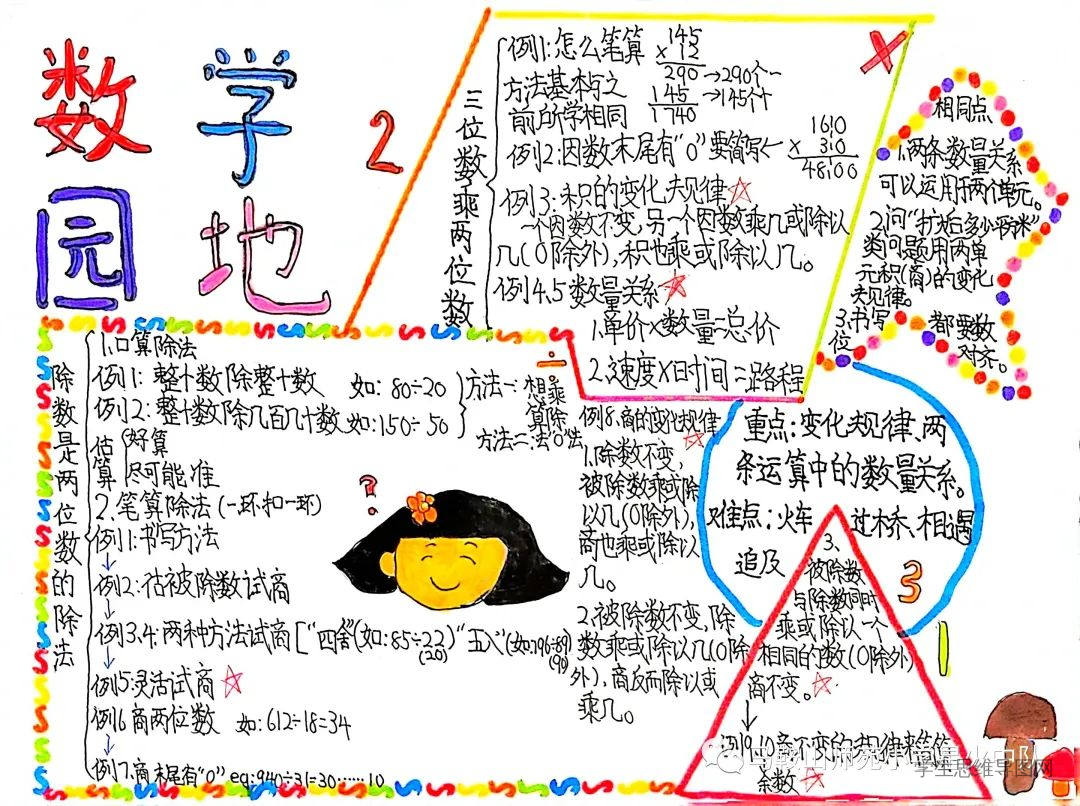 数学
园地
2
三位数乘两位数
例1:怎么笔算
方法基本与之
前所学相同
145
×12
290→290个一
145→145个十
1740
例2:因数末尾有“0”要简写←
1610
×310
48100
例3:积的变化规律☆
一个因数不变,另一个因数乘几或除以
几(0除外),积也乘或除以几。
例4.5数量关系☆
1.单价×数量=总价
2.速度×时间=路程
×
相同点
1.两条数量关系
可以运用于两个单元。
2.问“扩后多少平米”
类问题用两单
元积(商)的变化
规律。
3.书写
都要数
位对齐。
÷
除数是两位数的除法
1.口算除法
例1:整十数除整十数 如:80÷20
例2:整十数除几百几十数 如:150÷50
方法一:想乘算除
方法二:去“0”法
估算
好算
尽可能准
2.笔算除法(一环扣一环)
例1:书写方法
↓
例2:估被除数试商
↓
例3.4:两种方法试商[“四舍”(如:85÷22)“五入”(如:196÷89)
(20) (90)
↓
例5:灵活试商☆
例6商两位数 如:612÷18=34
↓
例7.商末尾有“0” eg:940÷31=30……10
?
例8.商的变化规律
☆
1.除数不变,
被除数乘或除
以几(0除外),
商也乘或除以
几。
2.被除数不变,除
数乘或除以几(0除
外),商反而除以或
乘几。
3、
被除数
与除数同时
乘或除以一个
相同的数(0除外)
商不变。☆
↓
例9.10商不变的规律来
☆
重点:变化规律、两
条运算中的数量关系。
难点:火车过桥、相遇
追及
3
马鞍山师苑小
学生思维导图网